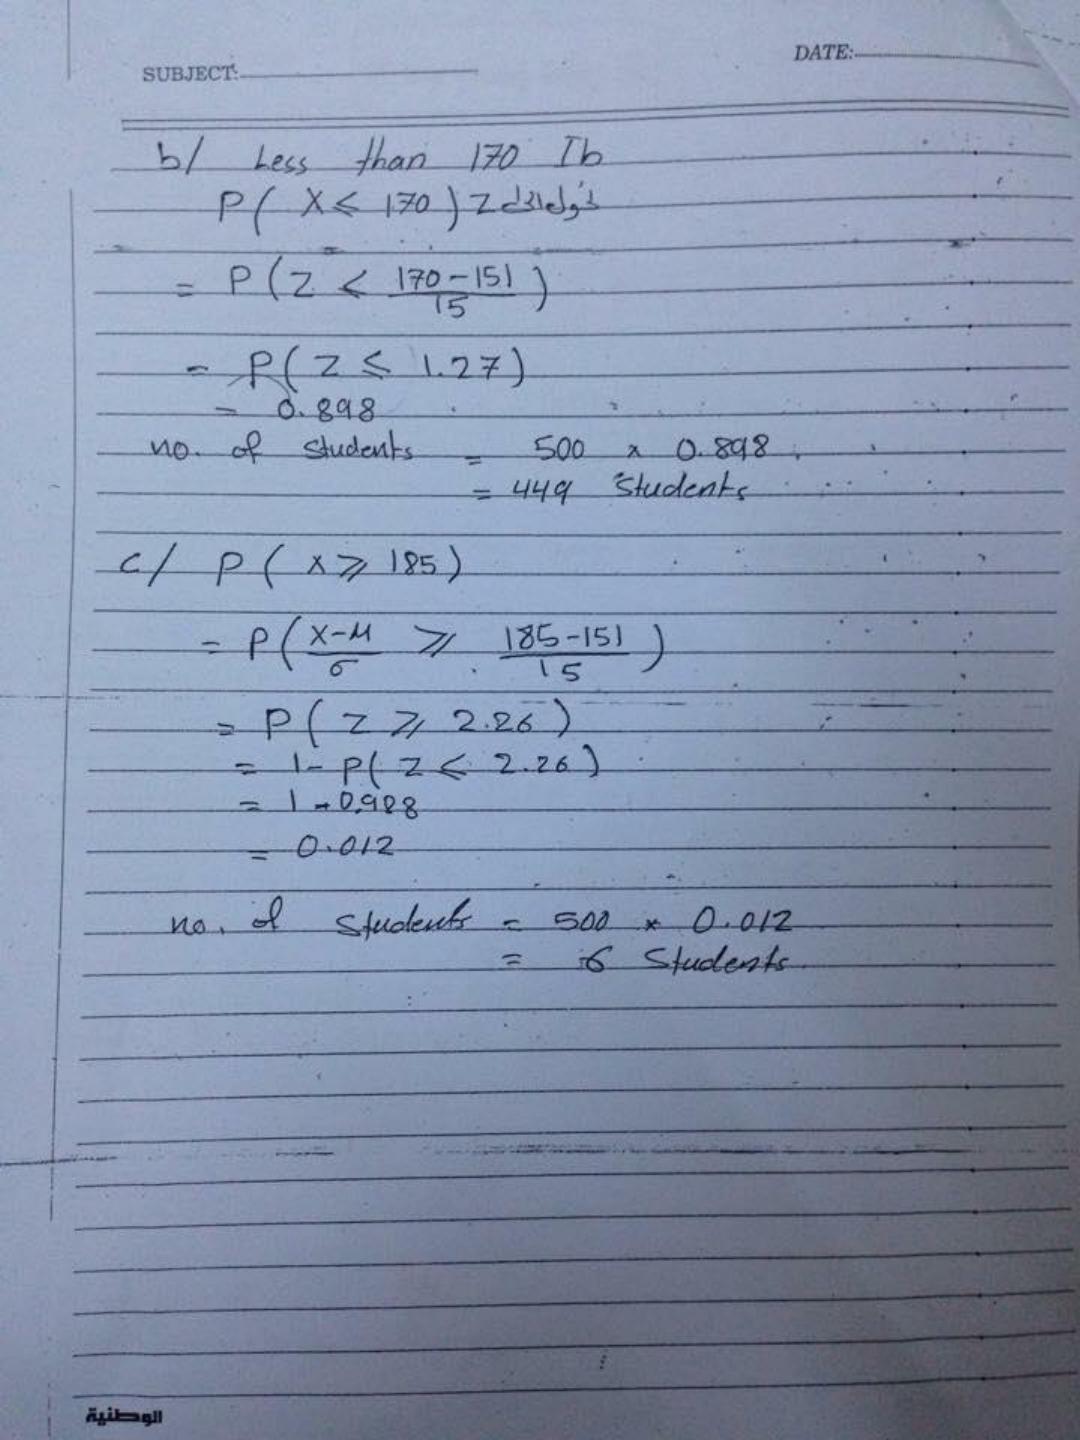 SUBJECT:
DATE:
b/ Less than 170 Ib
P( X ≤ 170 ) Z نحولها لـ
= P( Z < 170-151 / 15 )
= P( Z ≤ 1.27 )
= 0.898
no. of students = 500 x 0.898
= 449 Students
c/ P ( X ⩾ 185 )
= P( X-M / σ ⩾ 185-151 / 15 )
= P( Z ⩾ 2.26 )
= 1- P( Z ≤ 2.26 )
= 1 - 0.988
= 0.012
no. of Students = 500 * 0.012
= 6 Students
الوطنية